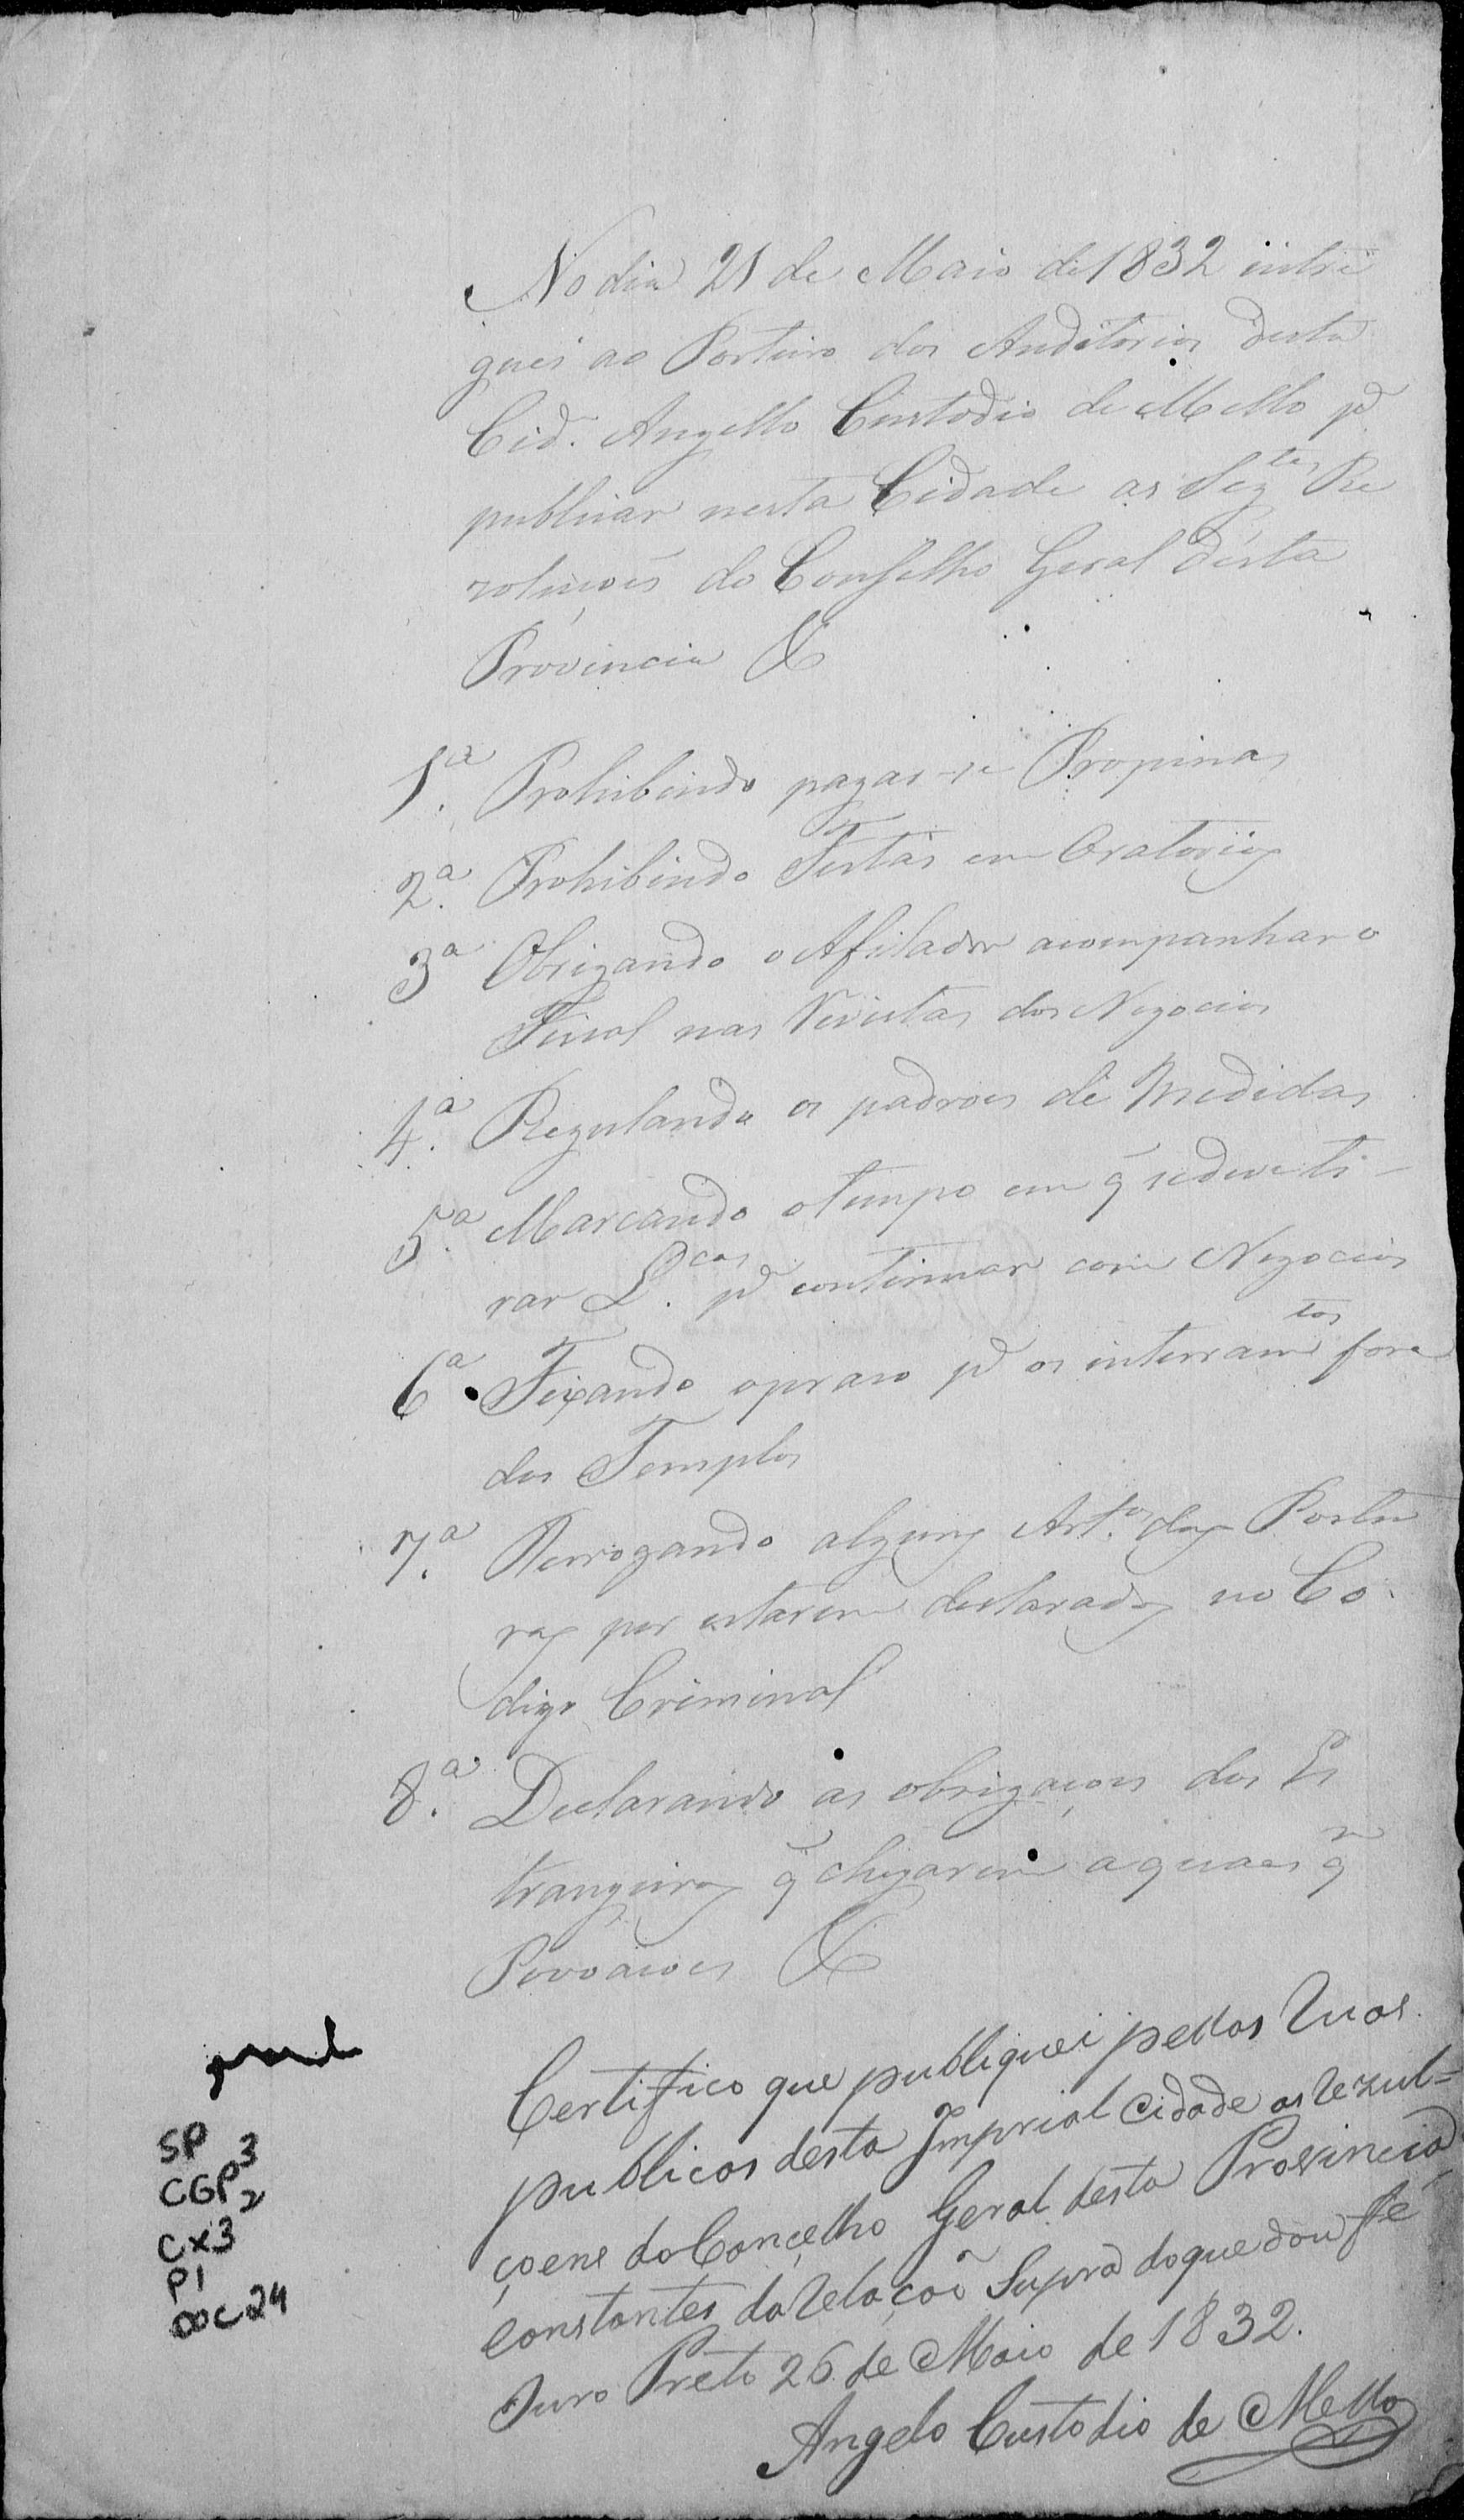 No dia 21 de Maio de 1832 intre
guei ao Porteiro dos Auditorios desta
Cid.e Angello Custodio de Mello pa
publicar nesta Cidade as Segtes Re
zoluçoẽs do Conselho Geral desta
Provincia &
1.a Prohibindo pagar-se Propinas
2.a Prohibindo Festas em Oratorios
3a Obrigando o Afilador acompanhar o
Fiscal nas Vizistas dos Negocios
4.a Regulando os padroes de Medidas
5.a Marcando o tempo em q̃ se deve ti-
rar L.cas pa continuar com Negocios
6a Fixando o praso pa os interramtos fora
dos Templos
7.a Derrogando alguns Art.os das Postu
ras por estarem declarados no Co
digo Criminal
8.a Declarando as obrigaçoes dos Es
trangeiros q̃ chegarem a quaes qr
Povoaçoes &
Certifico que publiquei pellas Ruas
publicas desta Imprial Cidade as Rezul=
çoens do Conçelho Geral desta Provincia
constantes da Relaçaõ Supra do que dou fé
Ouro Preto 26 de Maio de 1832.
Angelo Custodio de Mello
SP
CGP3
2
CX3
P1
DOC 24